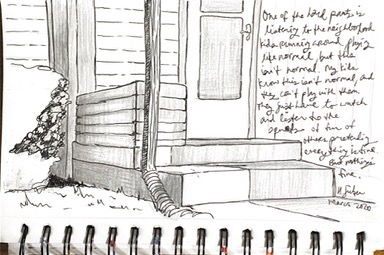 One of the hard parts is
listening to the neighborhood
kids running around playing
like normal, but this
isn't normal. My kids
know this isn't normal, and
they can't play with them.
They just have to watch
and listen to the
of fun of
others pretending
everything is fine
But nothing's
fine.
March 2020